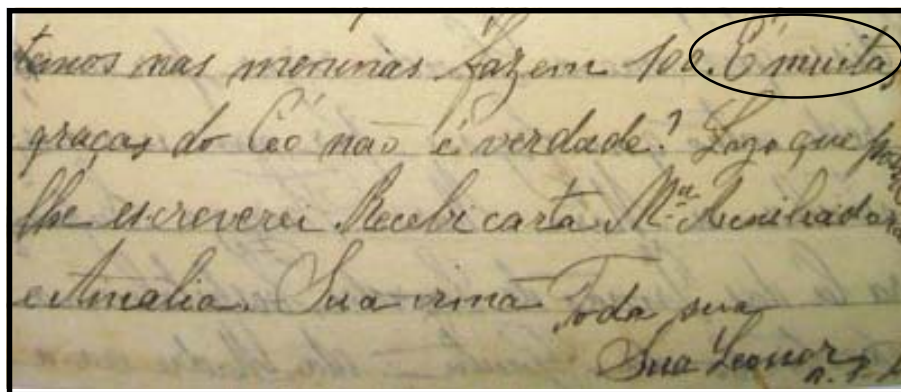 temos nas meninas fazem 100. É muitas
graças do Céo não é verdade? Logo que
lhe escreverei. Recebi carta M.ª Auxiliadora
e Amalia. Sua irmã Toda sua
Sua Leonor